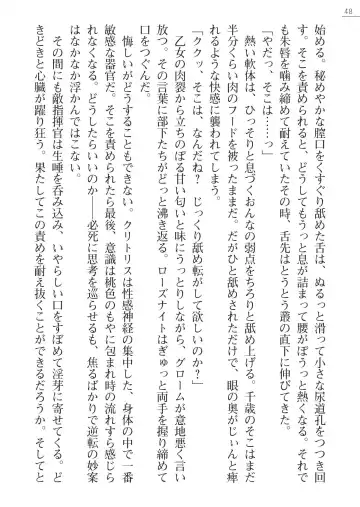 48
始める。秘めやかな膣口をくすぐり舐めた舌は、ぬるっと滑って小さな尿道孔をつつき回
す。そこを責められると、どうしてもふっと息が詰まって腰がぼうっと熱くなる。それで
も朱唇を噛み締めて耐えていたその時、舌先はとうとう叢の直下に伸びてきた。
「やだっ、そこは……っ」
熱い軟体は、ひっそりと息づくおんなの弱点をちろりと舐め上げる。千歳のそこはまだ
半分くらい肉のフードを被ったままだ。だがひと舐めされただけで、眼の奥がじぃんと痺
れるような快感に襲われてしまう。
「ククッ、そこは、なんだね？　じっくり舐め転がして欲しいのか？」
乙女の肉裂から立ちのぼる甘い匂いと味にうっとりしながら、グロームが意地悪く言い
放つ。その言葉に部下たちがどっと沸き返る。ローズナイトはぎゅっと両手を握り締めて
口をつぐんだ。
悔しいがどうすることもできない。クリトリスは性感神経の集中した、身体の中で一番
敏感な器官だ。そこを責められたら最後、意識は桃色のもやに包まれ時の流れすら感じら
れなくなる。どうしたらいいのか――必死に思考を巡らせるも、焦るばかりで逆転の妙案
はなかなか浮かんではこない。
その間にも敵指揮官は生唾を呑み込み、いやらしい口をすぼめて淫芽に寄せてくる。ど
きどきと心臓が躍り狂う。果たしてこの責めを耐え抜くことができるだろうか。そしてと